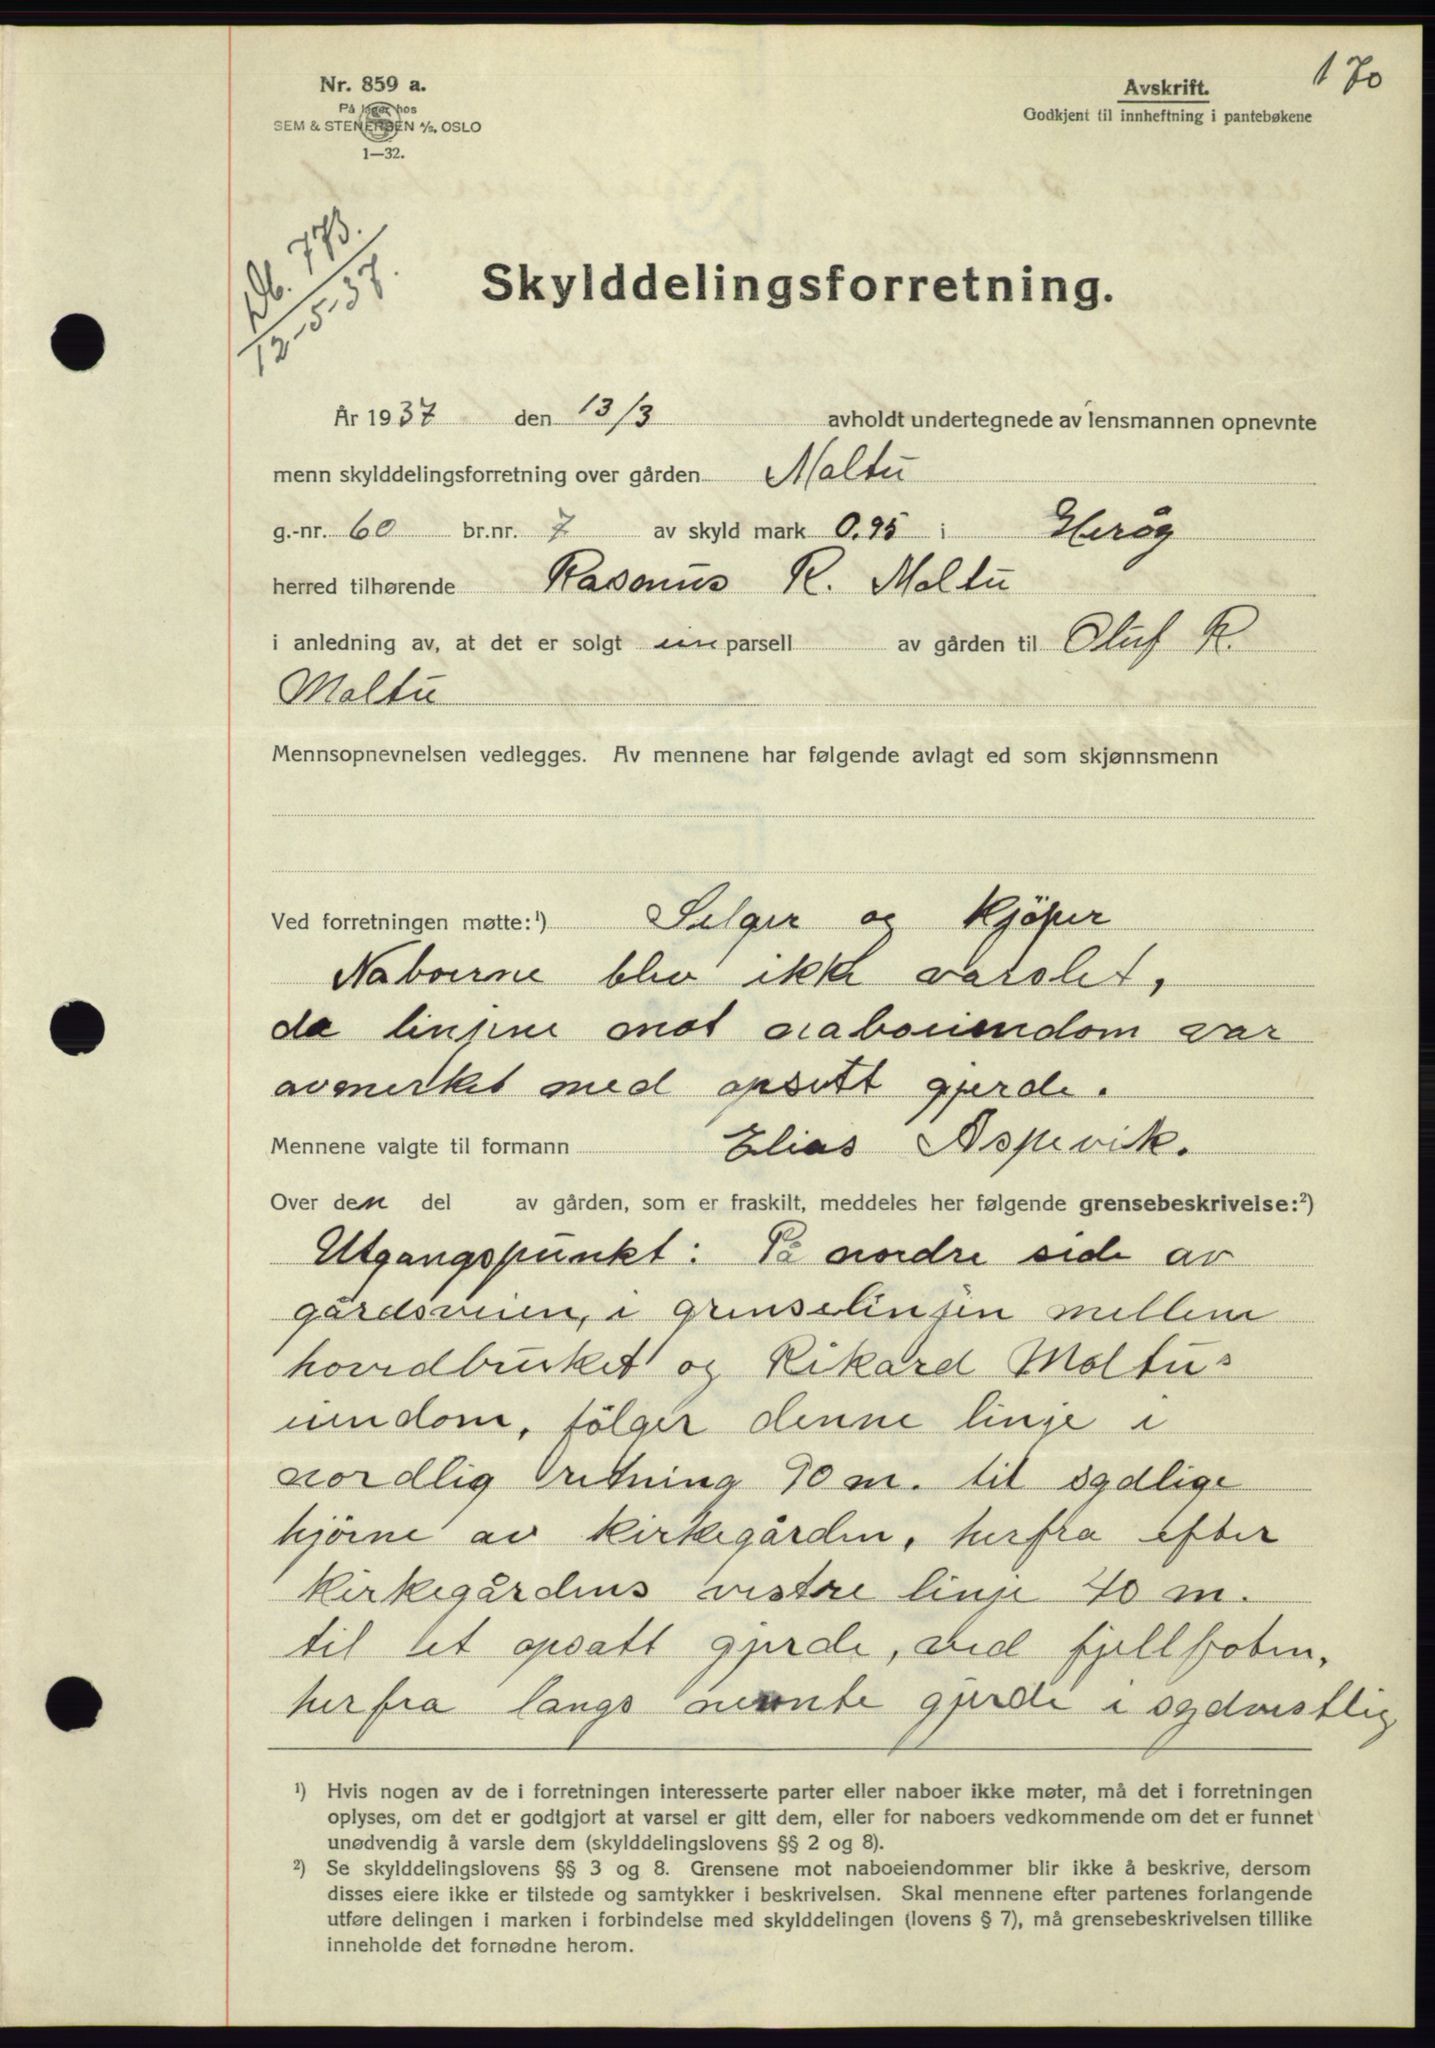 170
Nr. 859 a.
På lager hos
SEM & STENERSEN A/S, OSLO
1—32.
Avskrift.
Godkjent til innheftning i pantebøkene
Db. 773.
12-5-37.
Skylddelingsforretning.
År 1937 den 13/3 avholdt undertegnede av lensmannen opnevnte
menn skylddelingsforretning over gården Moltu
g.-nr. 60 br.nr. 7 av skyld mark 0.95 i Herøy
herred tilhørende Rasmus R. Moltu
i anledning av, at det er solgt en parsell av gården til Oluf R.
Moltu
Mennsopnevnelsen vedlegges. Av mennene har følgende avlagt ed som skjønnsmenn
Ved forretningen møtte:¹) Selger og kjöper
Naboerne blev ikke varslet,
da linjene mot naboeiendom var
avmerket med opsett gjerde.
Mennene valgte til formann Elias Aspevik.
Over den del av gården, som er fraskilt, meddeles her følgende grensebeskrivelse:²)
Utgangspunkt: På nordre side av
gårdsveien, i grenselinjen mellem
hovedbruket og Rikard Moltus
eiendom, fölger denne linje i
nordlig retning 90 m. til sydlige
hjörne av kirkegården, herfra efter
kirkegårdens vestre linje 40 m.
til et opsatt gjerde, ved fjellfoten,
herfra langs nevnte gjerde i sydvestlig
¹) Hvis nogen av de i forretningen interesserte parter eller naboer ikke møter, må det i forretningen
oplyses, om det er godtgjort at varsel er gitt dem, eller for naboers vedkommende om det er funnet
unødvendig å varsle dem (skylddelingslovens §§ 2 og 8).
²) Se skylddelingslovens §§ 3 og 8. Grensene mot naboeiendommer blir ikke å beskrive, dersom
disses eiere ikke er tilstede og samtykker i beskrivelsen. Skal mennene efter partenes forlangende
utføre delingen i marken i forbindelse med skylddelingen (lovens § 7), må grensebeskrivelsen tillike
inneholde det fornødne herom.